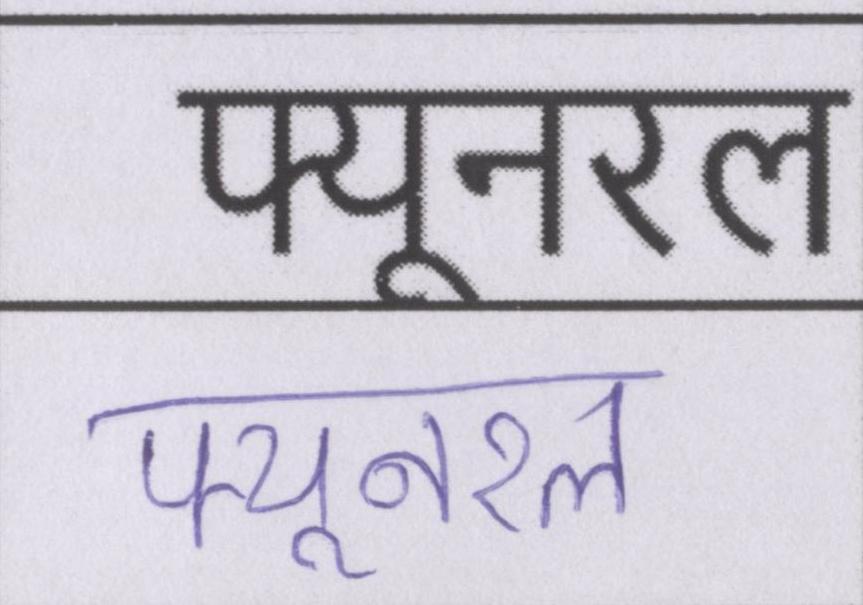 फ्यूनरल
फ्यूनरल